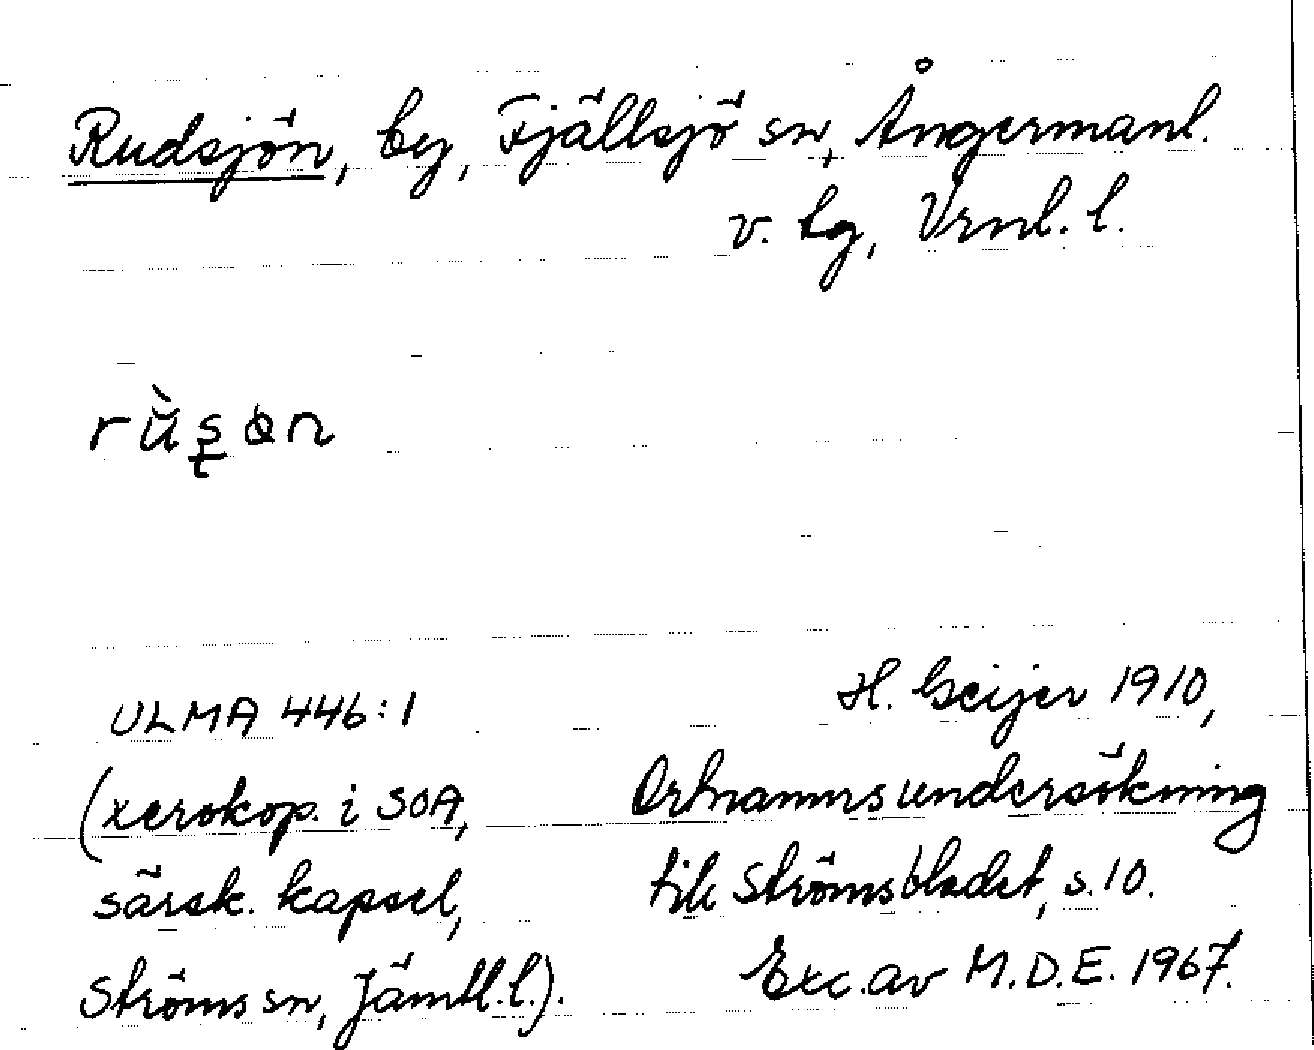 Rudsjön, by, Fjällsjö sn, Ångermanl.
v. tg, Vrnl. l.
rùʂɵn
ULMA 446:1
(xerokop. i SOA,
särsk. kapsel,
Ströms sn, Jämtl.l.).
H. Geijer 1910,
Ortnamnsundersökning
till Strömsbladet, s. 10.
Exc. av M.D.E. 1967.